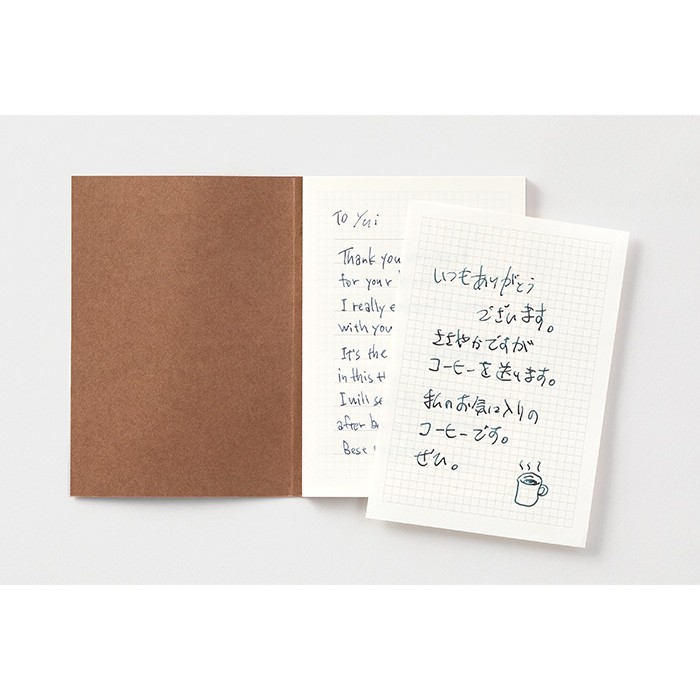 To Yui
Thank you
for your
I really e
with you
It's the
in this t
I will se
after b
Best
いつもありがとう
ございます。
ささやかですが
コーヒーを送ります。
私のお気に入りの
コーヒーです。
ぜひ。